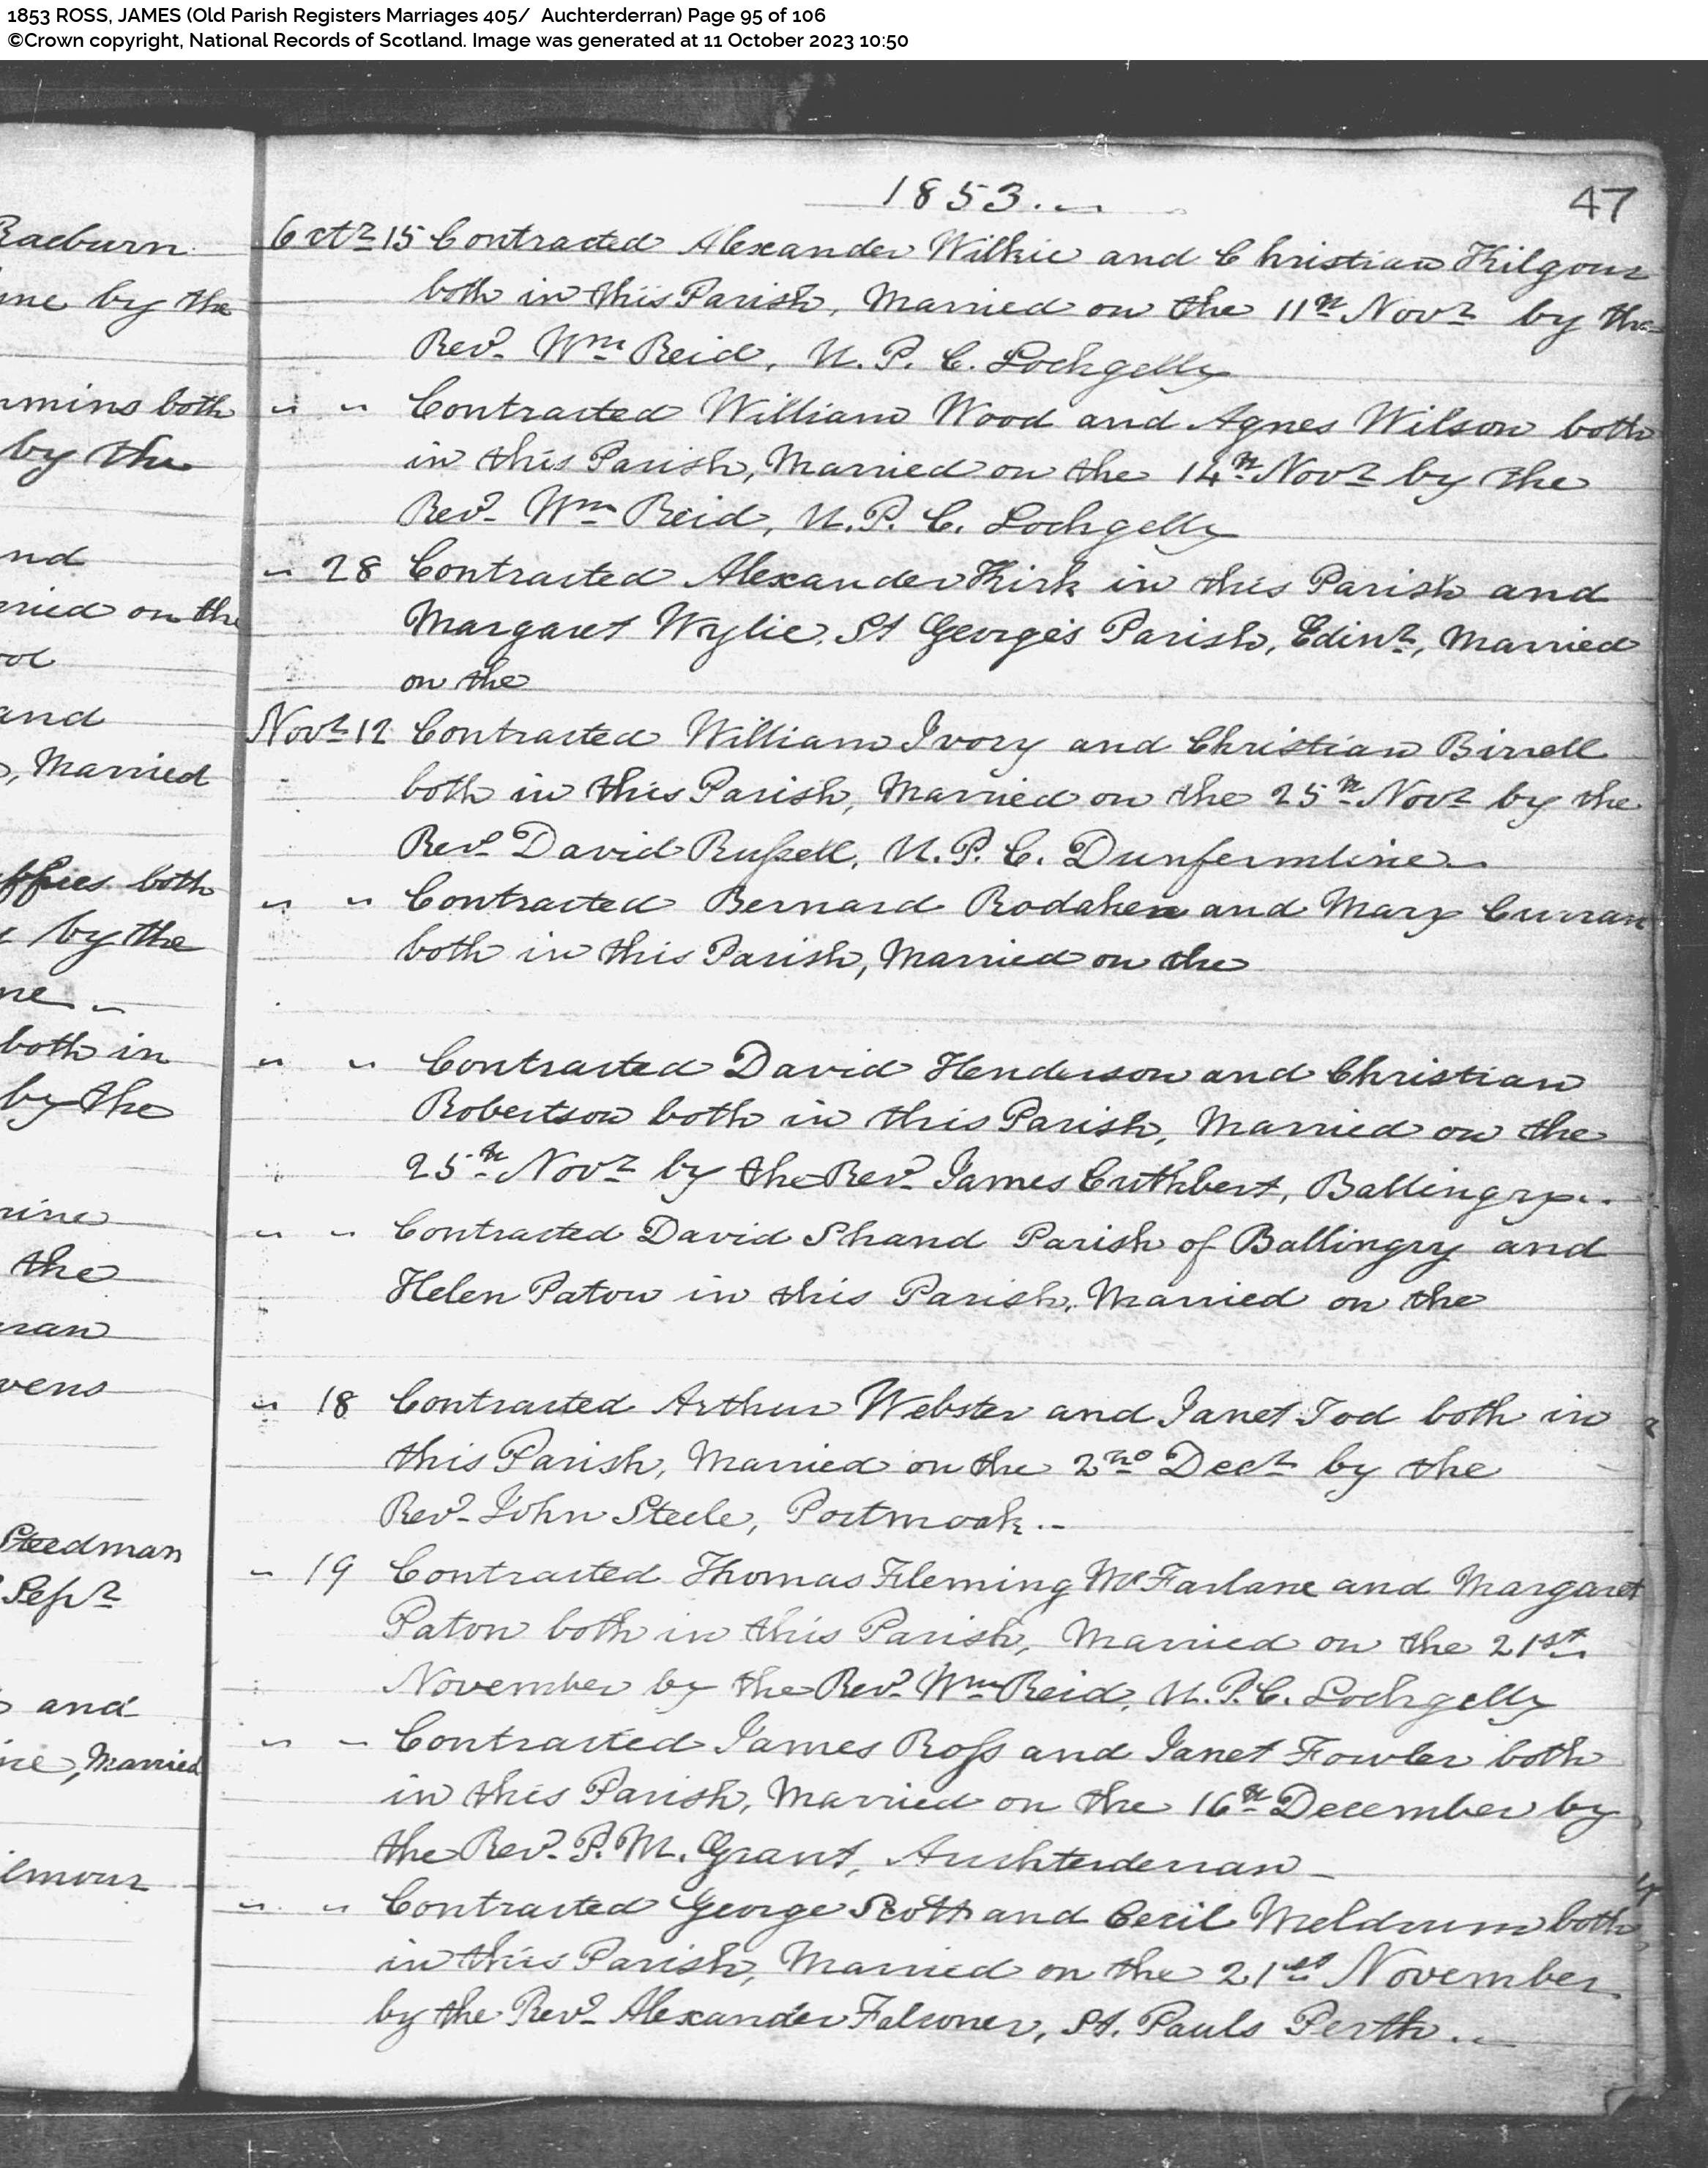 1853 ROSS, JAMES (Old Parish Registers Marriages 405/ Auchterderran) Page 95 of 106
©Crown copyright, National Records of Scotland. Image was generated at 11 October 2023 10:50
Raeburn
ine by the
mmins both
by the
and
rried on the
and
, Married
by the
both in
by the
the
Steedman
Sepr
and
Married
1853.
47
Octr 15 Contracted Alexander Wilkie and Christian Kilgour
both in this Parish, Married on the 11th Novr by the
Revd Wm Reid, U. P. C. Lochgelly
" " Contracted William Wood and Agnes Wilson both
in this Parish, Married on the 14th Novr by the
Revd Wm Reid, U. P. C. Lochgelly
" 28 Contracted Alexander Kirk in this Parish and
Margaret Wylie, St George's Parish, Edinr, Married
on the
Novr 12 Contracted William Ivory and Christian Birrell
both in this Parish, Married on the 25th Novr by the
Revd David Russell, U. P. C. Dunfermline
" " Contracted Bernard Rodahen and Mary Curran
both in this Parish, Married on the
" " Contracted David Henderson and Christian
Robertson both in this Parish, Married on the
25th Novr by the Revd James Cuthbert, Ballingry
" " Contracted David Shand Parish of Ballingry and
Helen Paton in this Parish, Married on the
" 18 Contracted Arthur Webster and Janet Tod both in
this Parish, Married on the 2nd Decr by the
Revd John Steele, Portmoak
" 19 Contracted Thomas Fleming McFarlane and Margaret
Paton both in this Parish, Married on the 21st
November by the Revd Wm Reid, U. P. C. Lochgelly
" " Contracted James Ross and Janet Fowler both
in this Parish, Married on the 16th December by
the Revd P. M. Grant, Auchterderran
" " Contracted George Scott and Cecil Meldrum both
in this Parish, Married on the 21st November
by the Revd Alexander Falconer, St. Pauls Perth